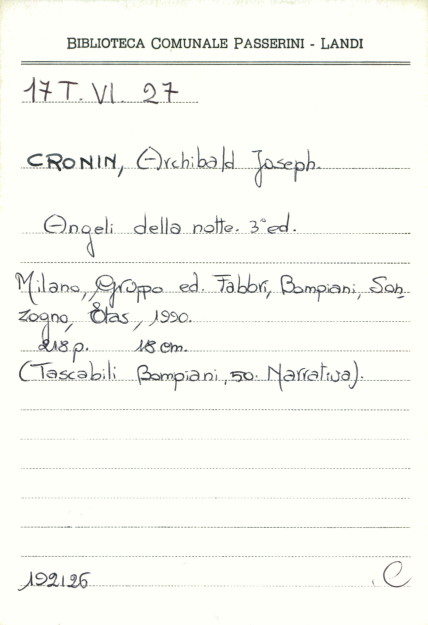 BIBLIOTECA COMUNALE PASSERINI - LANDI
17 T. VI. 27
CRONIN, Archibald Joseph.
Angeli della notte. 3°ed.
Milano, Gruppo ed. Fabbri, Bompiani, Son
zogno, Etas, 1990.
218 p. 18 cm.
(Tascabili Bompiani, 50. Narrativa).
192126 C